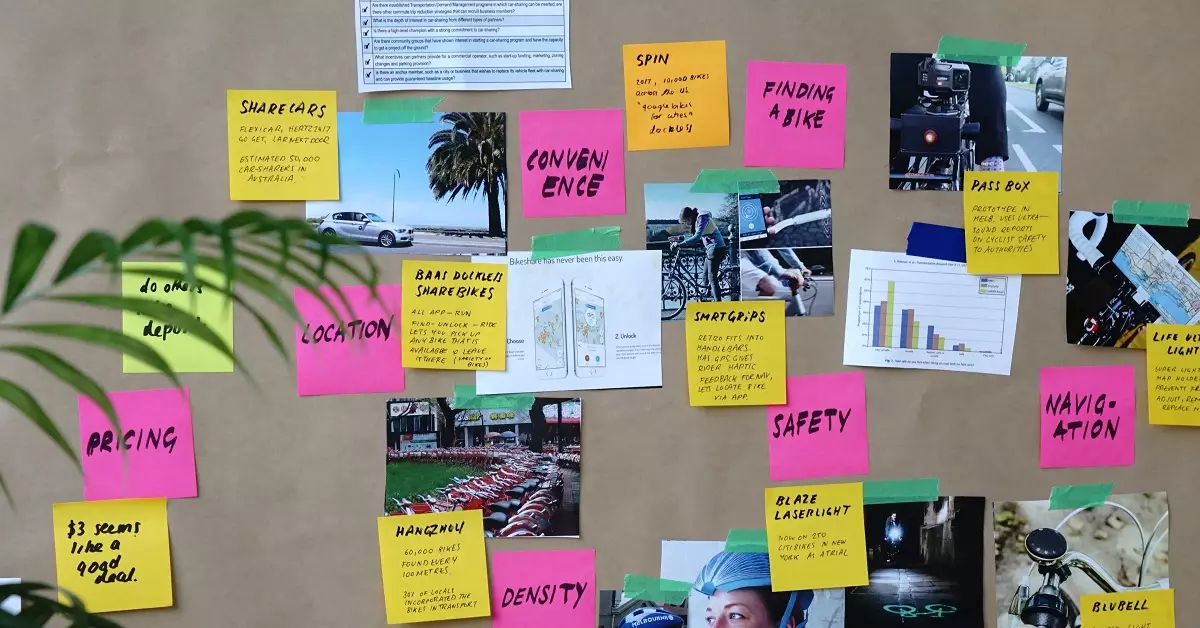 Are there established Transportation/Demand/Management programs in which car-sharing can be inserted, are
there other commute trip reduction strategies that can recruit business members?
What is the depth of interest in car-sharing from different types of partners?
Is there a high-level champion with a strong commitment to car-sharing?
Are there community groups that have shown interest in starting a car-sharing program and have the capacity
to get a project off the ground?
What incentives can partners provide for a commercial operator, such as start-up funding, marketing, zoning
changes and parking provision?
Is there an anchor member, such as a city or business that wishes to replace its vehicle fleet with car-sharing
and can provide guaranteed baseline usage?
SHARECARS
FLEXICAR, HERTZ 24/7
GO GET, CAR NEXT DOOR
ESTIMATED 50,000
CAR-SHARERS IN
AUSTRALIA.
CONVENI
ENCE
SPIN
2017, 10,000 BIKES
ACROSS THE US
"google bikes
for cities"
dockless
FINDING
A BIKE
PASS BOX
PROTOTYPE IN
MELB. USES ULTRA-
SOUND REPORTS
ON CYCLIST SAFETY
TO AUTHORITIES
do others
depos
LOCATION
BAAS DOCKLESS
SHAREBIKES
ALL APP-RUN
FIND-UNLOCK-RIDE
LETS YOU PICK UP
ANY BIKE THAT IS
AVAILABLE & LEAVE
IT HERE (VARIETY OF
BIKES)
Bikeshare has never been this easy.
Choose
2. Unlock
SMRTGRIPS
RETRO FITS INTO
HANDLEBARS.
HAS GPS, GIVES
RIDER HAPTIC
FEEDBACK FOR NAV,
LETS LOCATE BIKE
VIA APP.
LIFE UL
LIGHT
SUPER LIGHT
MAP HOLDE
PREVENTS
ADJUST, REM
REPLACE M
PRICING
SAFETY
NAVIG-
ATION
$3 seems
like a
good
deal.
HANGZHOU
60,000 BIKES
FOUND EVERY
100 METRES.
30% OF LOCALS
INCORPORATED THE
BIKES IN TRANSPORT
DENSITY
BLAZE
LASERLIGHT
NOW ON 250
CITIBIKES IN NEW
YORK AS A TRIAL
MELBOURNE
BLUBELL
LIGHT